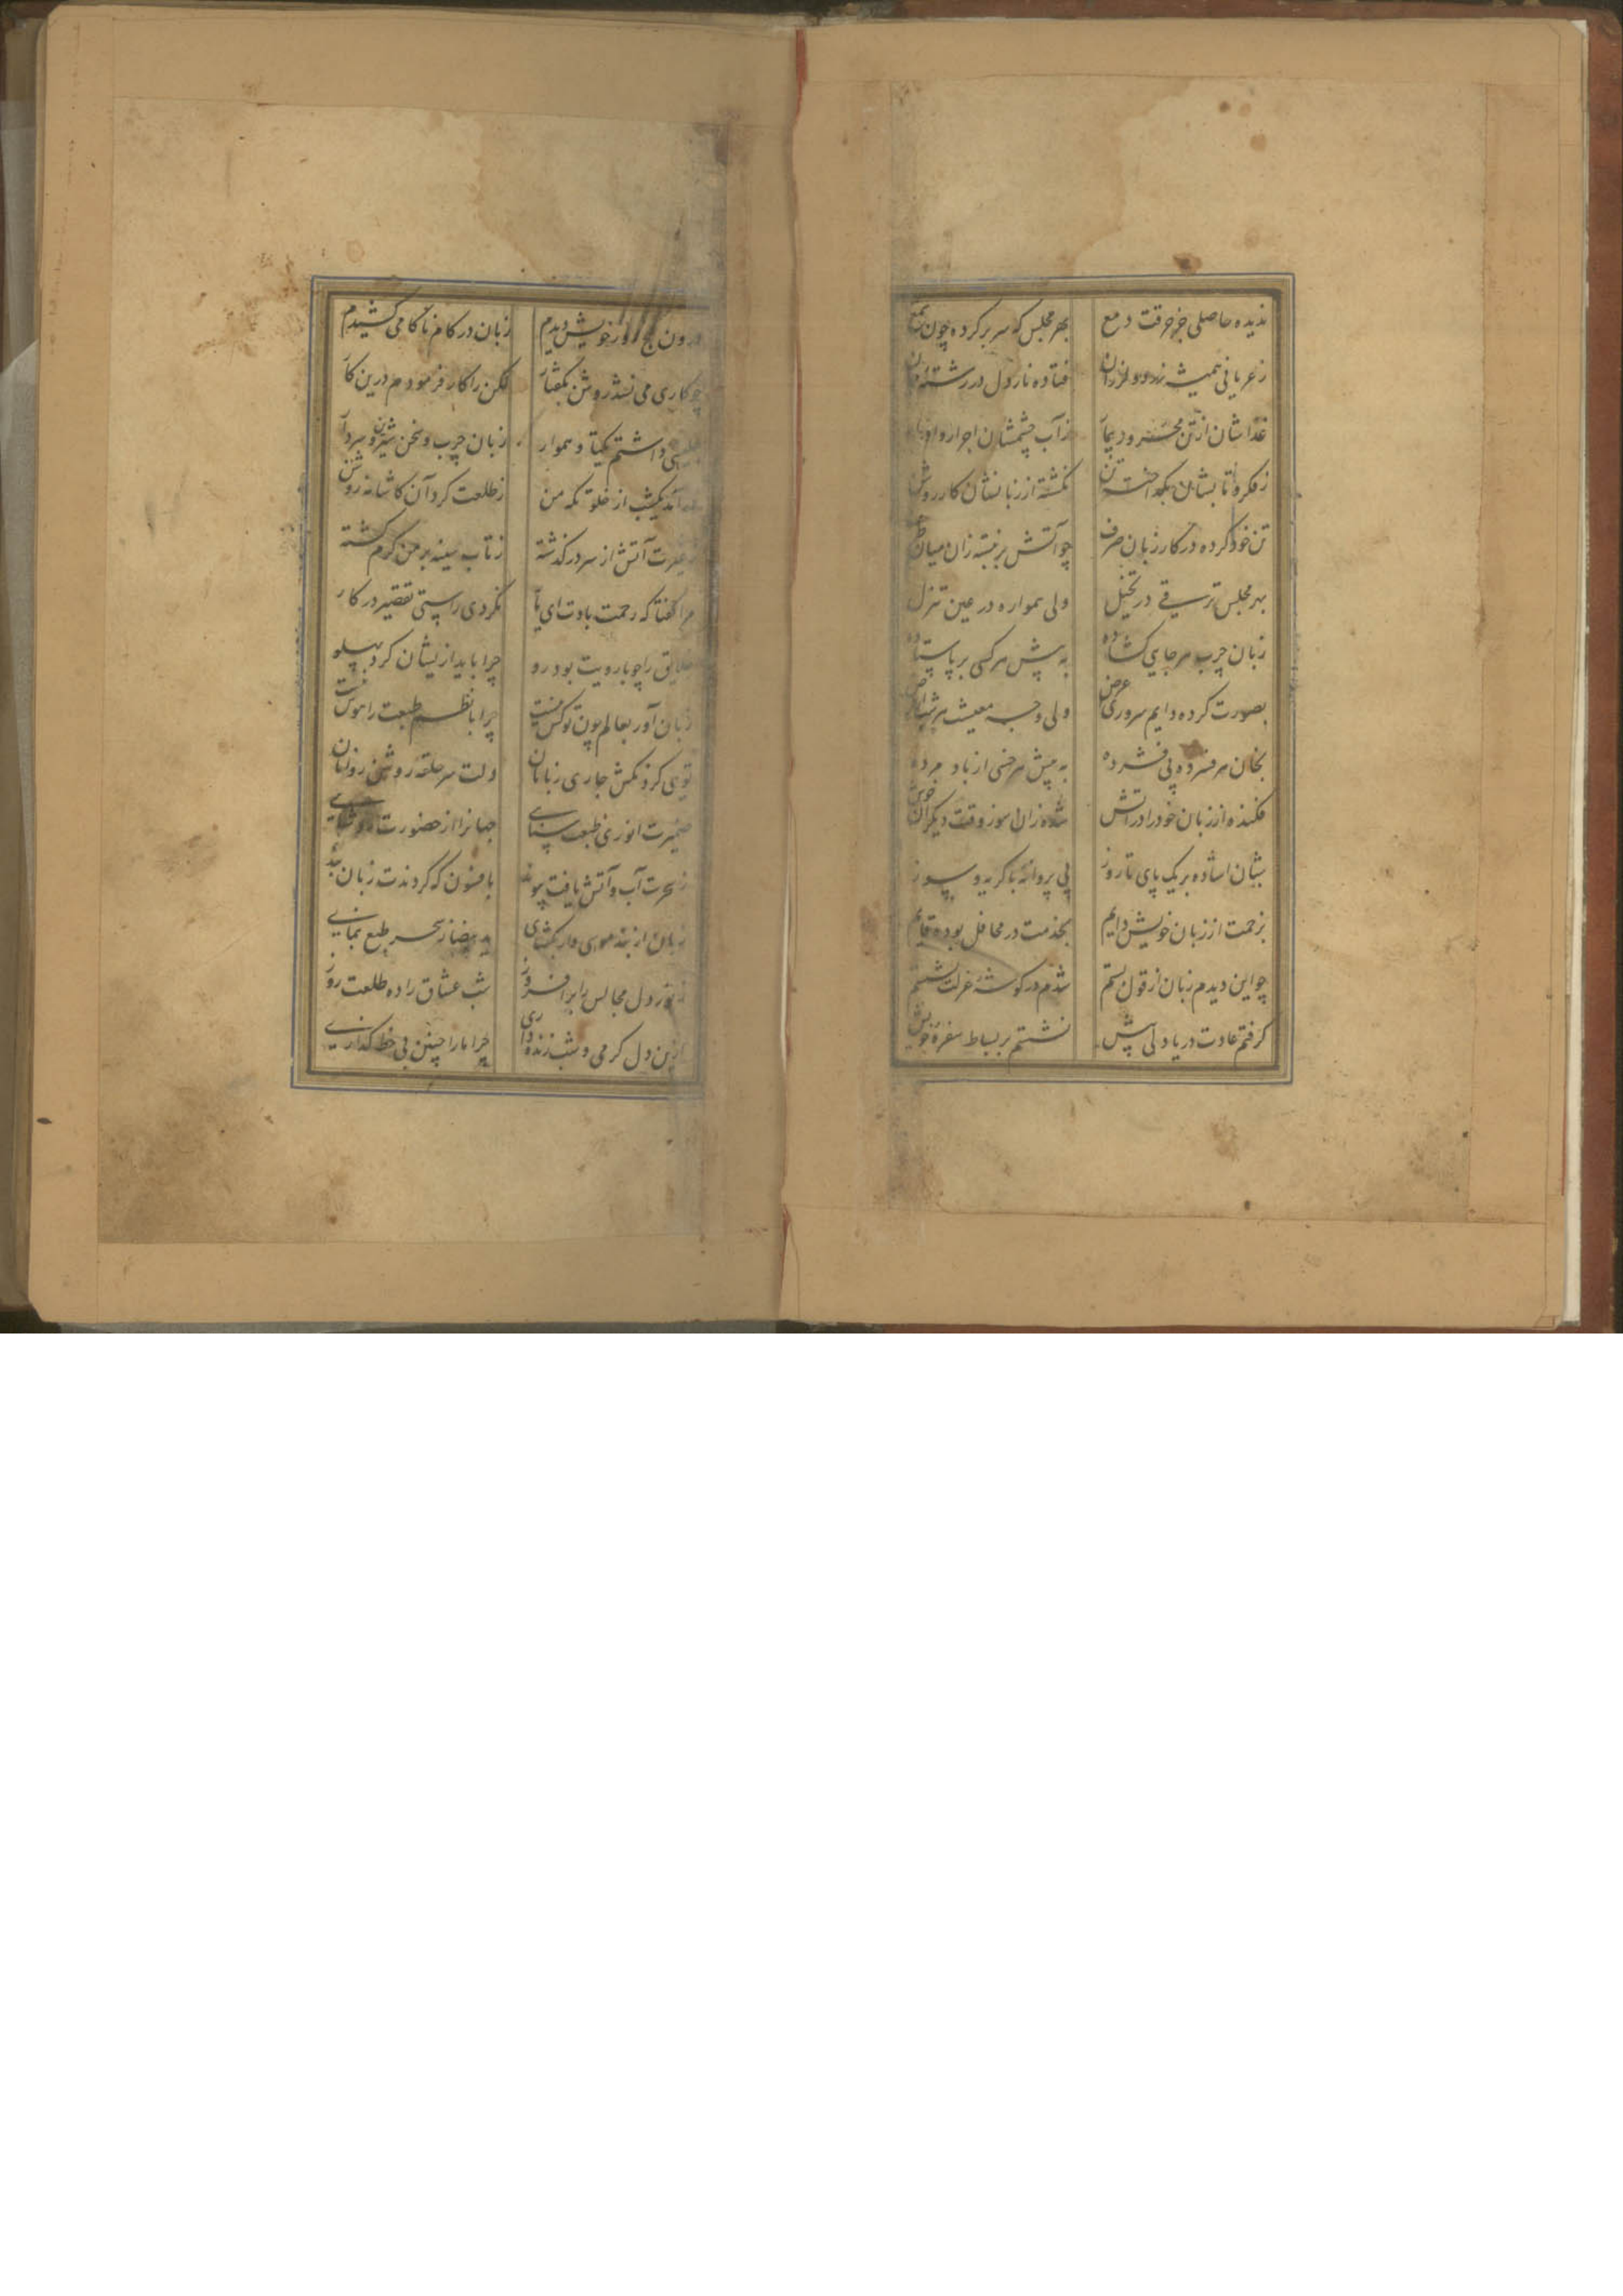 ندیده حاصلی جز حرقت دمع بهر مجلس که سر بر کرده چون شمع
ز عریانی همیشه زرد و لرزان فتاده نار دل در رشتهٔ جان
غذاشان از تن محرور بیمار ز آب چشمشان اجرا و ادرار
ز فکر و تابشان بگداخته تن نگشته از زبانشان کار روشن
تن خود کرده در کار زبان صرف چو آتش بر نبسته زان میان طرف
بهر مجلس ترقی در تخیل ولی همواره در عین تنزل
زبان چرب هر جایی گشاده به پیش هر کسی بر پا ستاده
بصورت کرده دایم سروری عرض ولی وجه معیشت هر شب از قرض
بخان هر فسرده پی فشرده به پیش هر خسی از باد مرده
فکنده از زبان خود را در آتش شده زان سوز وقت دیگران خوش
بشان استاده بر یک پای تا روز پی پروانهٔ با گریه و سوز
بزحمت از زبان خویش دایم بخدمت در محافل بوده قایم
چو این دیدم زبان از قول بستم شدم در گوشهٔ عزلت نشستم
گرفتم عادت دریا دلی پیش نشستم بر بساط سفرهٔ خویش
درون کنج روز خویش دیدم زبان در کام ناکامی کشیدم
چو کاری می نشد روشن بگفتار لگن را کار فرمودم درین کار
داشتم یکتا و هموار زبان چرب و سخن شیرین و سردار
یکشب از خلوتگه من ز طلعت کرد آن کاشانه روشن
ز غیرت آتش از سر در گذشته ز تاب سینه بر من گرم گشته
مرا گفتا که رحمت بادت ای یار نکردی راستی تقصیر در کار
خلایق را چو با رویت بود رو چرا باید ازیشان کرد پهلو
زبان آور بعالم چون تو کس نیست چرا با نظم طبعت را هوس نیست
تویی کز نکتش جاری زبانان دلت سر حلقهٔ روشن روانان
ضمیرت انوری طبعت سنایی جهانرا از حضورت روشنایی
ز سحرت آب و آتش یافت پیوند بافسون که کردندت زبان بند
زبان از بند موسی وار بگشای ید بیضا ز سحر طبع بنمای
ز نور دل مجالس را بر افروز شب عشاق را ده طلعت روز
ازین دل گرمی و شب زنده داری چرا ما را چنین بی حظ گذاری